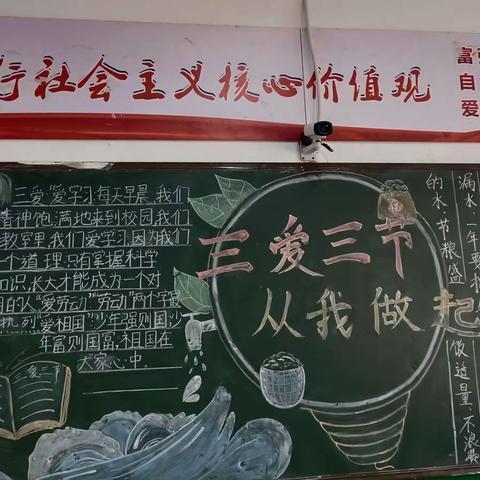 行社会主义核心价值观
富强
自
爱
三爱"爱学习"每天早晨,我们
精神饱满地来到校园我们
教室里,我们爱学习,因为我们
一个道理:只有掌握科学
知识,长大才能成为一个对
"爱劳动""劳动"两个字最
热烈"爱祖国":少年强则国
年富则国富,祖国在
大家心中.
三爱三节
三爱三节
从我做起
漏水,一年要
的水.节粮盛
做适量,不浪费